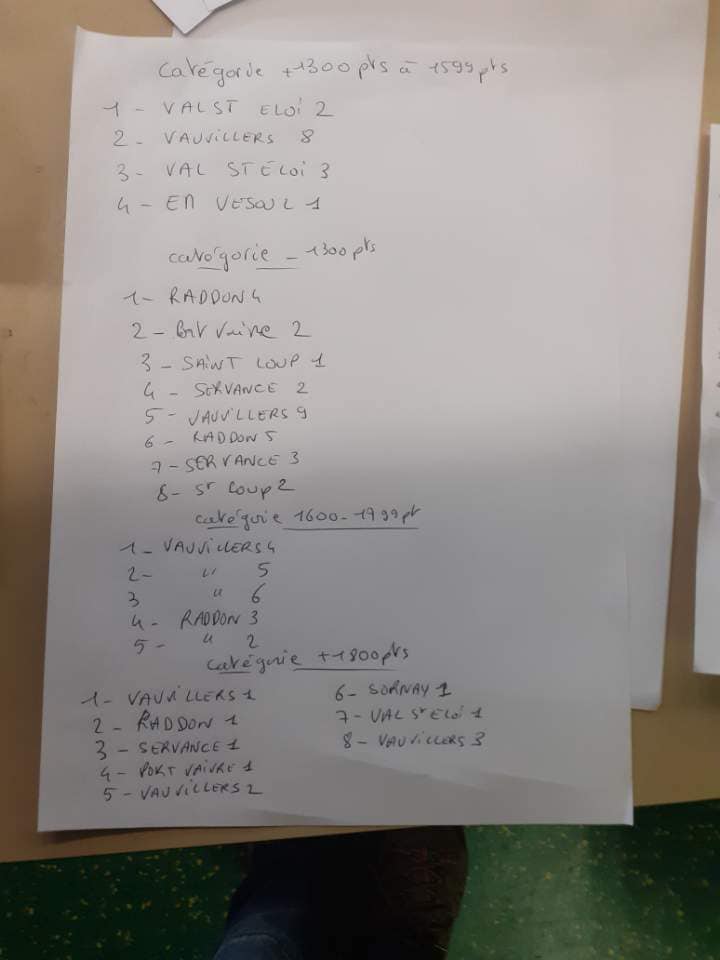 catégorie +1300pts à 1599pts
1 - VALST ELOI 2
2 - VAUVILLERS 8
3 - VAL ST ÉLOI 3
4 - EN VESOUL 1
catégorie - 1300pts
1 - RADDON 4
2 - Vaivre 2
3 - SAINT LOUP 1
4 - SERVANCE 2
5 - VAUVILLERS 9
6 - RADDON 5
7 - SERVANCE 3
8 - St Loup 2
catégorie 1600-1799pt
1 - VAUVILLERS 4
2 - " 5
3 " 6
4 - RADDON 3
5 - " 2
catégorie +1800pts
1 - VAUVILLERS 1
2 - RADDON 1
3 - SERVANCE 1
4 - PORT VAIVRE 1
5 - VAUVILLERS 2
6 - SORNAY 1
7 - VAL ST ELOI 1
8 - VAUVILLERS 3